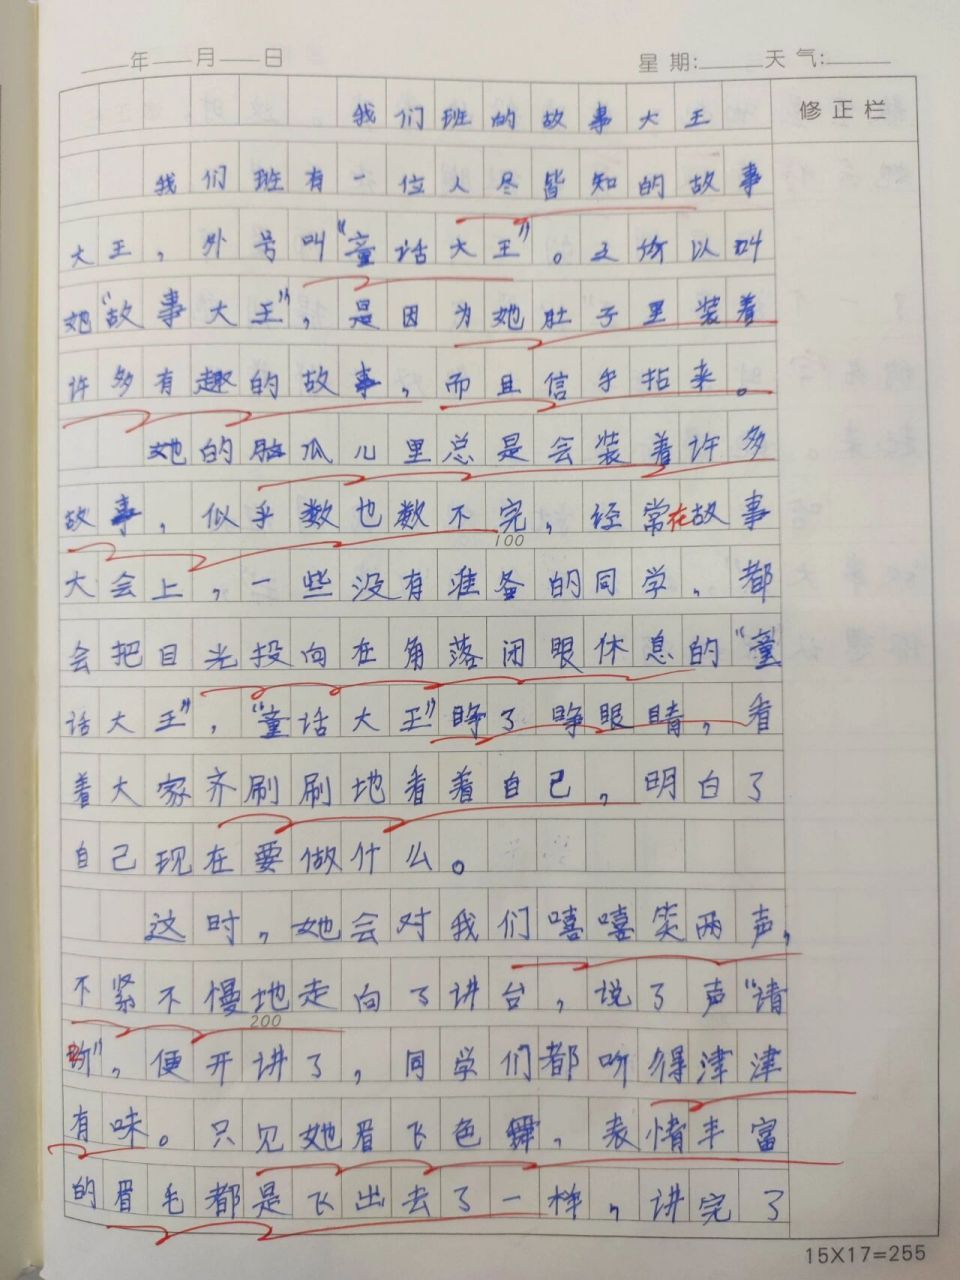 年 月 日 星期: 天气:
修正栏
我们班的故事大王
我们班有一位人尽皆知的故事
大王，外号叫“童话大王”。之所以叫
她“故事大王”，是因为她肚子里装着
许多有趣的故事，而且信手拈来。
她的脑瓜儿里总是会装着许多
故事，似乎数也数不完，经常在故事
大会上，一些没有准备的同学，都
会把目光投向在角落闭眼休息的“童
话大王”，“童话大王”睁了睁眼睛，看
着大家齐刷刷地看着自己，明白了
自己现在要做什么。
这时，她会对我们嘻嘻笑两声，
不紧不慢地走向了讲台，说了声“请
听”，便开讲了，同学们都听得津津
有味。只见她眉飞色舞，表情丰富
的眉毛都是飞出去了一样，讲完了
100
200
15X17=255